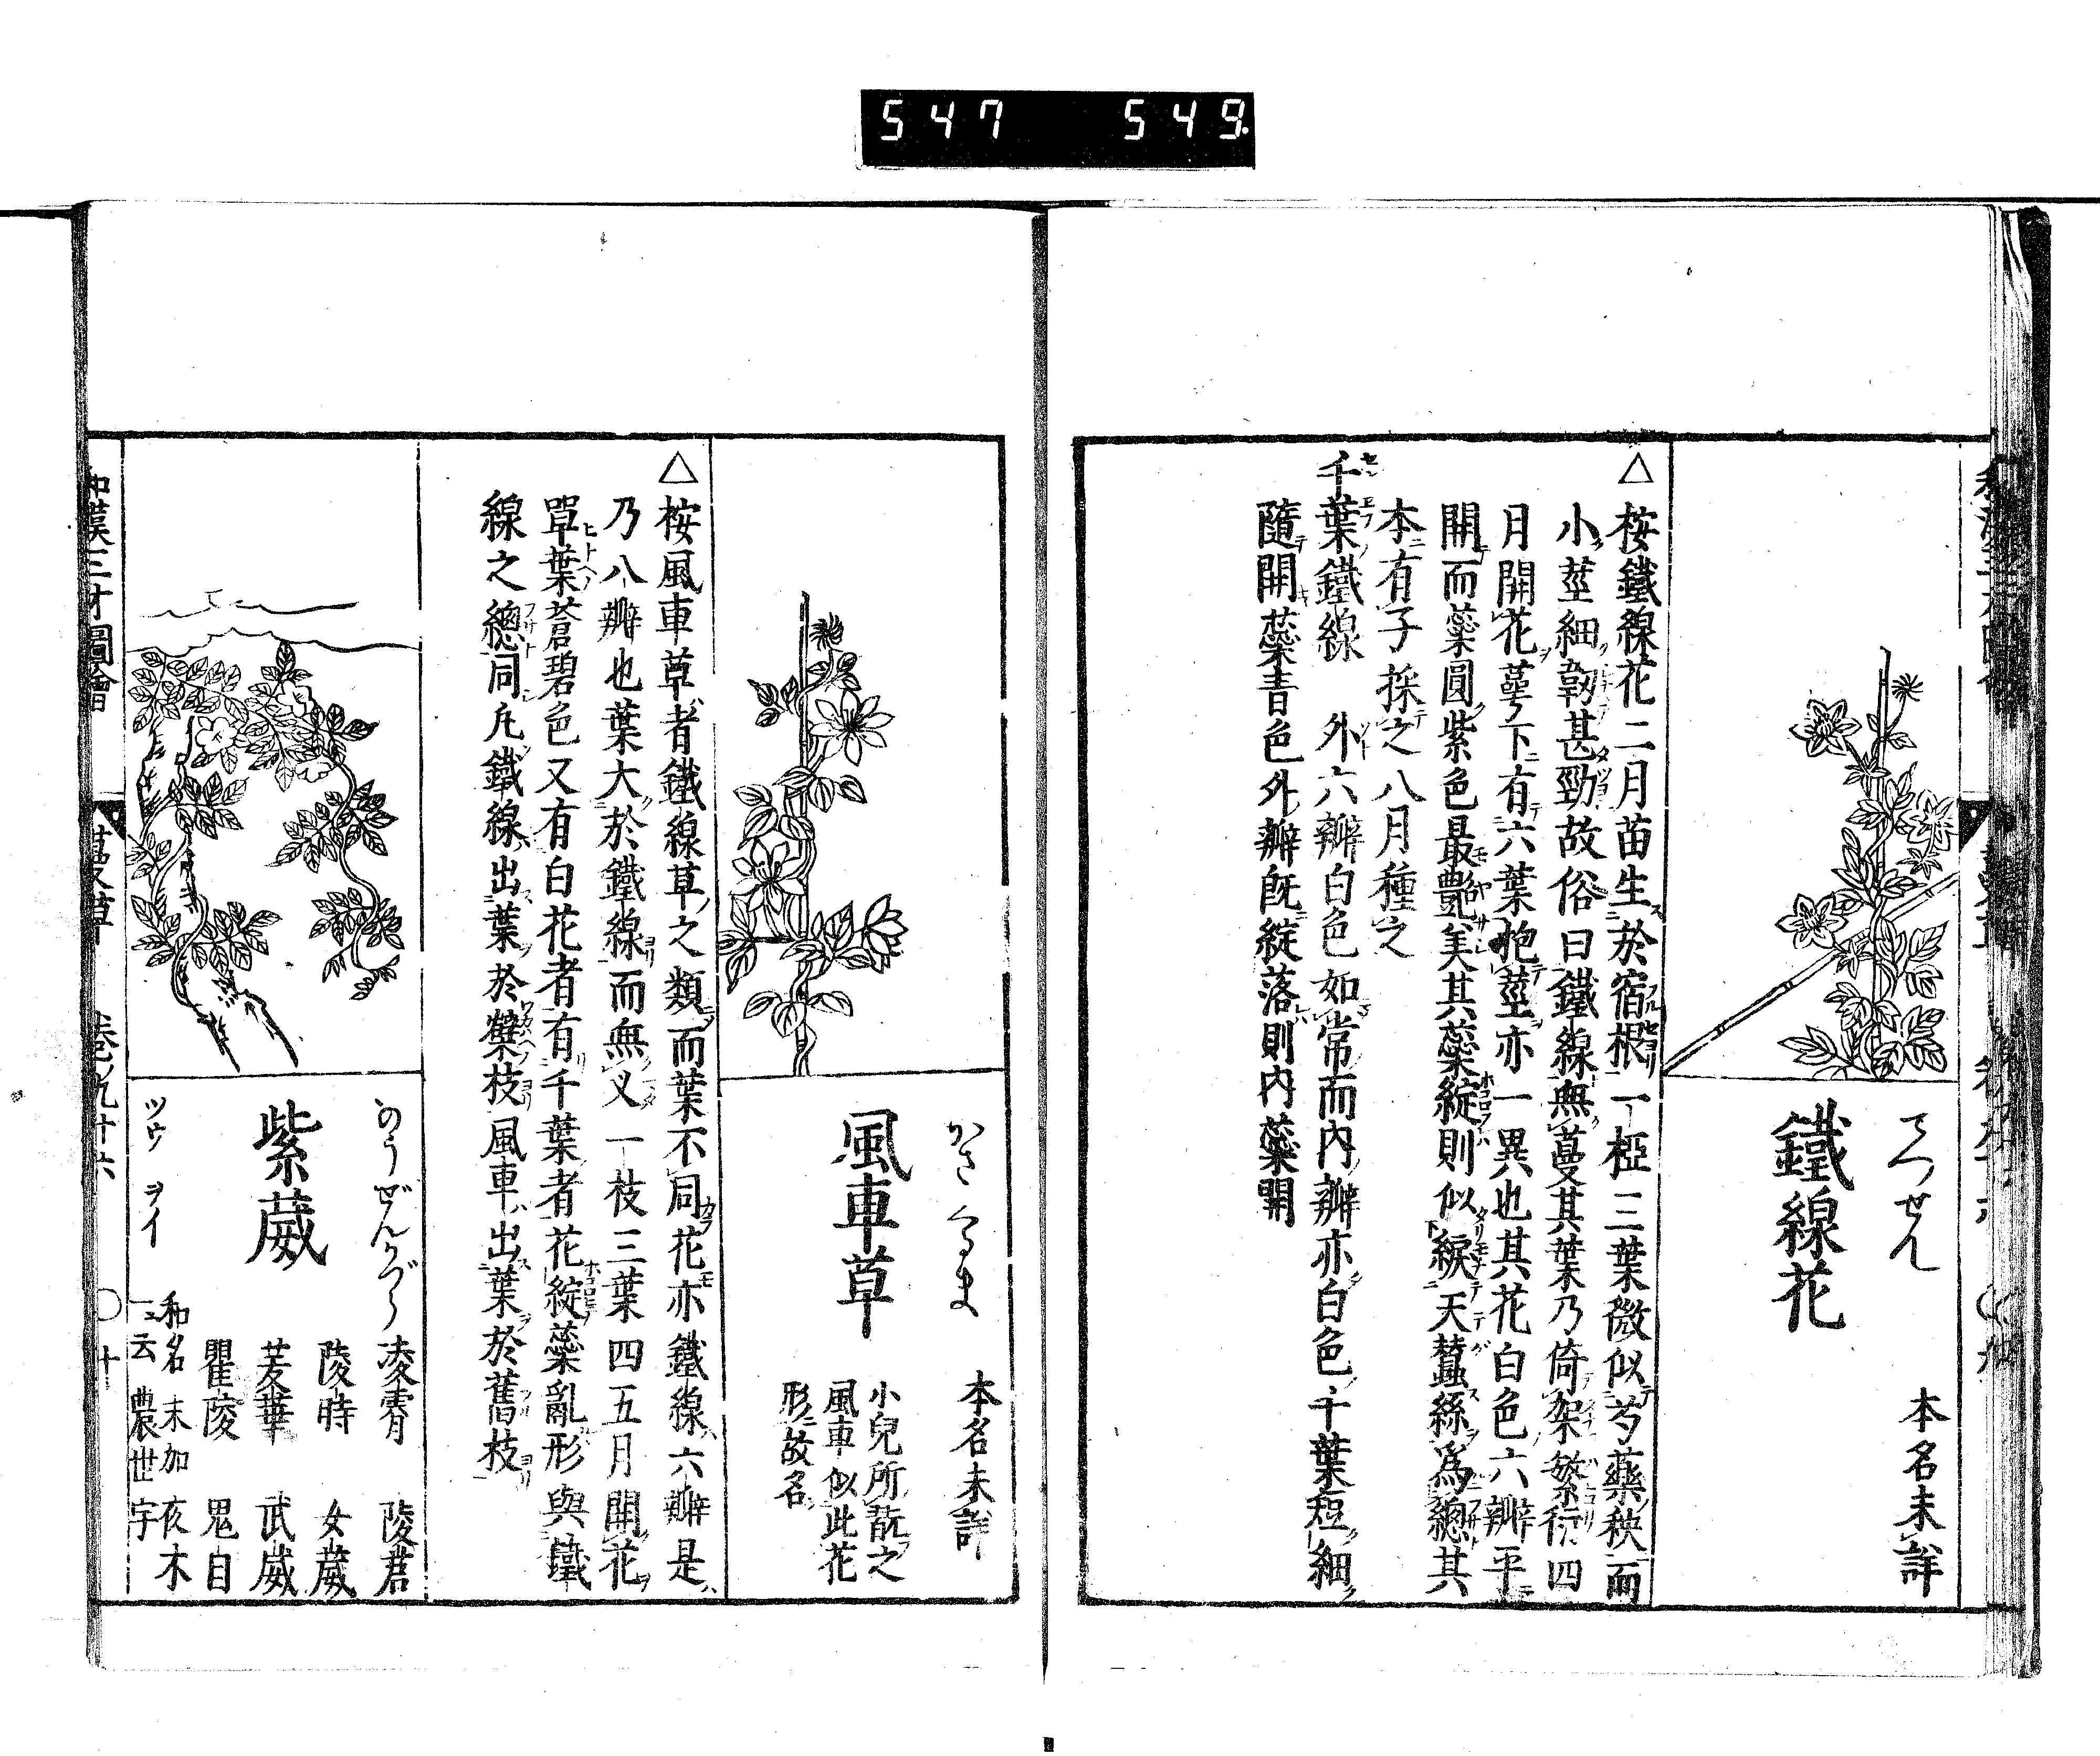 547 549
てつせん
鐵線花
本名未詳
△
桉鐵線花二月苗生於宿根一椏三葉微似芍藥秧而
小莖細韌甚勁故俗曰鐵線無蔓其葉乃倚架繁衍四
月開花蕚下有六葉抱莖亦一異也其花白色六瓣平
開而蘂圓紫色最艷美其蘂綻則似綟天蠶絲爲總其
本有子採之八月種之
千葉鐵線 外六瓣白色如常而内瓣亦白色千葉短細
隨開蘂青色外瓣旣綻落則内蘂開
かざくるま
風車草
本名未詳
小兒所翫之
風車似此花
形故名
△
桉風車草者鐵線草之類而葉不同花亦鐵線六瓣是
乃八瓣也葉大於鐵線而無乂一枝三葉四五月開花
單葉蒼碧色又有白花者有千葉者花綻蘂亂形與鐵
線之總同凡鐵線出葉於蘖枝風車出葉於舊枝
のうぜんかづら
紫葳
ツウ ヲイ
凌霄 陵苕
陵時 女葳
茇華 武葳
瞿陵 鬼目
和名末加夜木
一云農世宇
和漢三才圖會 蔓草 卷九十六 〇十